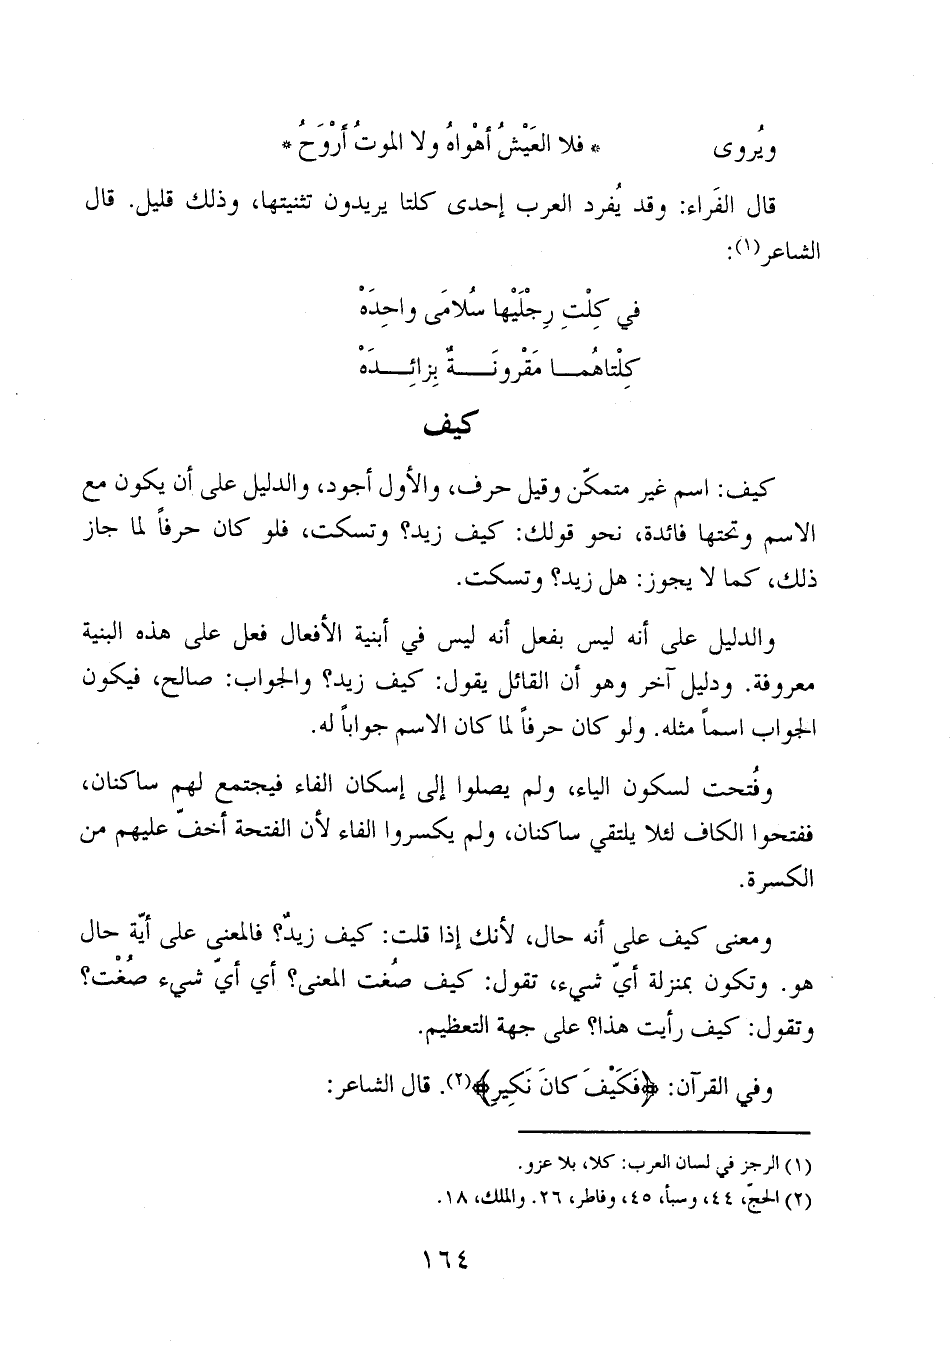 ويُروى * فلا العَيْشُ أهْواهُ ولا الموتُ أَرْوَحُ *
قال الفَراء: وقد يُفرد العرب إحدى كلتا يريدون تثنيتها، وذلك قليل. قال
الشاعر(١):
في كِلْتِ رِجْلَيْها سُلامَى واحِدَهْ
كِلْتاهُمـــا مَقْرونَـــةٌ بِزائِـــدَهْ
كيف
كيف: اسم غير متمكّن وقيل حرف، والأول أجود، والدليل على أن يكون مع
الاسم وتحتها فائدة، نحو قولك: كيف زيد؟ وتسكت، فلو كان حرفاً لما جاز
ذلك، كما لا يجوز: هل زيد؟ وتسكت.
والدليل على أنه ليس بفعل أنه ليس في أبنية الأفعال فعل على هذه البنية
معروفة. ودليل آخر وهو أن القائل يقول: كيف زيد؟ والجواب: صالح، فيكون
الجواب اسماً مثله. ولو كان حرفاً لما كان الاسم جواباً له.
وفُتحت لسكون الياء، ولم يصلوا إلى إسكان الفاء فيجتمع لهم ساكنان،
ففتحوا الكاف لئلا يلتقي ساكنان، ولم يكسروا الفاء لأن الفتحة أخفّ عليهم من
الكسرة.
ومعنى كيف على أنه حال، لأنك إذا قلت: كيف زيدٌ؟ فالمعنى على أيّة حال
هو. وتكون بمنزلة أيّ شيء، تقول: كيف صُغت المعنى؟ أي أيّ شيء صُغْت؟
وتقول: كيف رأيت هذا؟ على جهة التعظيم.
وفي القرآن: ﴿فَكَيْفَ كانَ نَكِيرِ﴾(٢). قال الشاعر:
(١) الرجز في لسان العرب: كلا، بلا عزو.
(٢) الحجّ، ٤٤، وسبأ، ٤٥، وفاطر، ٢٦. والملك، ١٨.
١٦٤